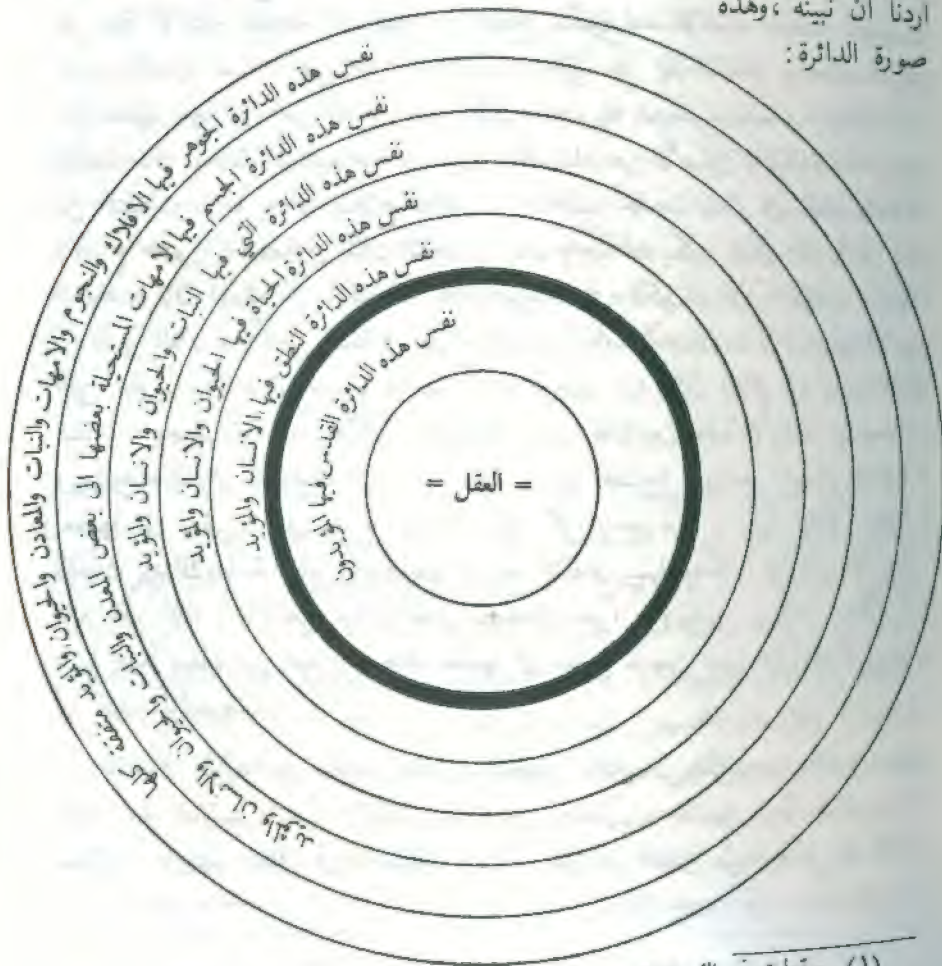 اردنا ان نبينه ،وهذه
صورة الدائرة:
نفس هذه الدائرة الجوهر فيها الافلاك والنجوم والامهات والنبات والمعادن والحيوان والمؤيد متفقة كلها
نفس هذه الدائرة الجسم فيها الامهات المستحيلة بعضها الى بعض المعدن والنبات والحيوان والانسان والمؤيد
نفس هذه الدائرة التي فيها النبات والحيوان والانسان والمؤيد
نفس هذه الدائرة الحياة فيها الحيوان والانسان والمؤيد
نفس هذه الدائرة النطق فيها الانسان والمؤيد
نفس هذه الدائرة القدس فيها المؤيدون
= العقل =
(١)